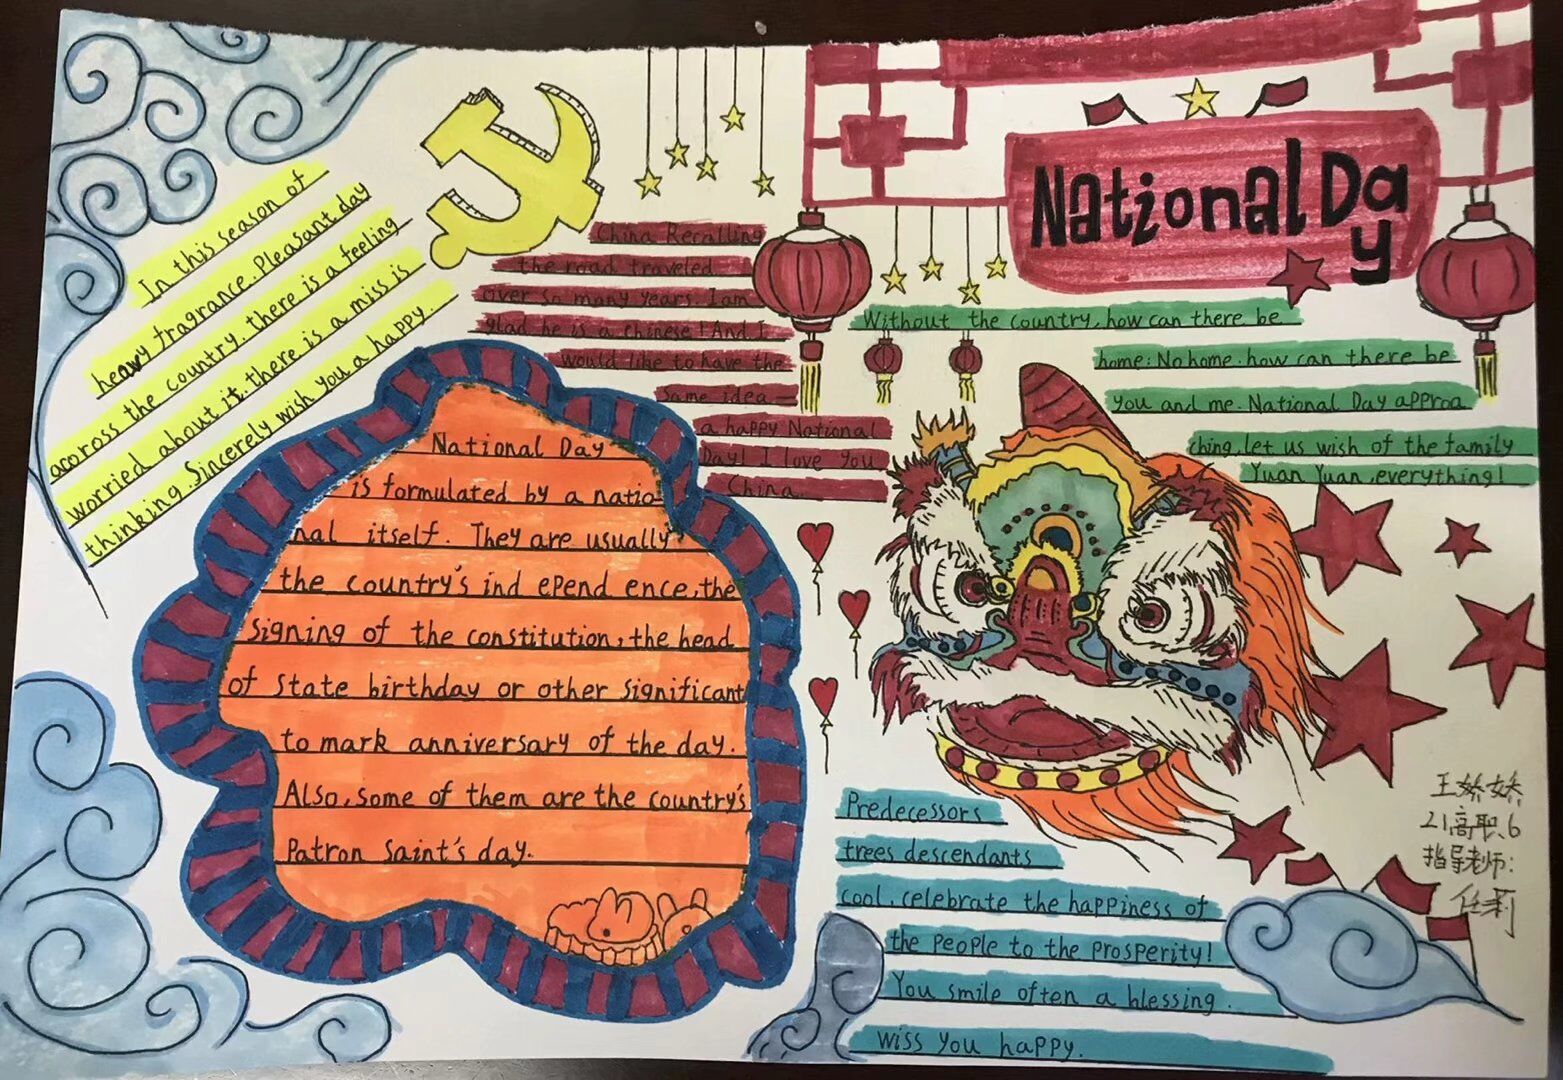 National Day
In this season of
heavy fragrance. Pleasant day
acoross the country. there is a feeling
worried about it. there is a miss is
thinking. Sincerely wish you a happy.
China Recalling
the road traveled
over so many years. I am
glad he is a chinese! And I
would like to have the
same idea
a happy National
Day! I love you
China
Without the country, how can there be
home: No home. how can there be
you and me. National Day approa
ching, let us wish of the family
Yuan Yuan, everything!
National Day
is formulated by a natio-
nal itself. They are usually
the country's ind epend ence, the
signing of the constitution, the head
of state birthday or other significant
to mark anniversary of the day.
Also, some of them are the country's
Patron saint's day.
Predecessors
trees descendants
cool, celebrate the happiness of
the people to the prosperity!
You smile often a blessing.
wiss you happy.
王娇娇
21高职.6
指导老师:
任莉